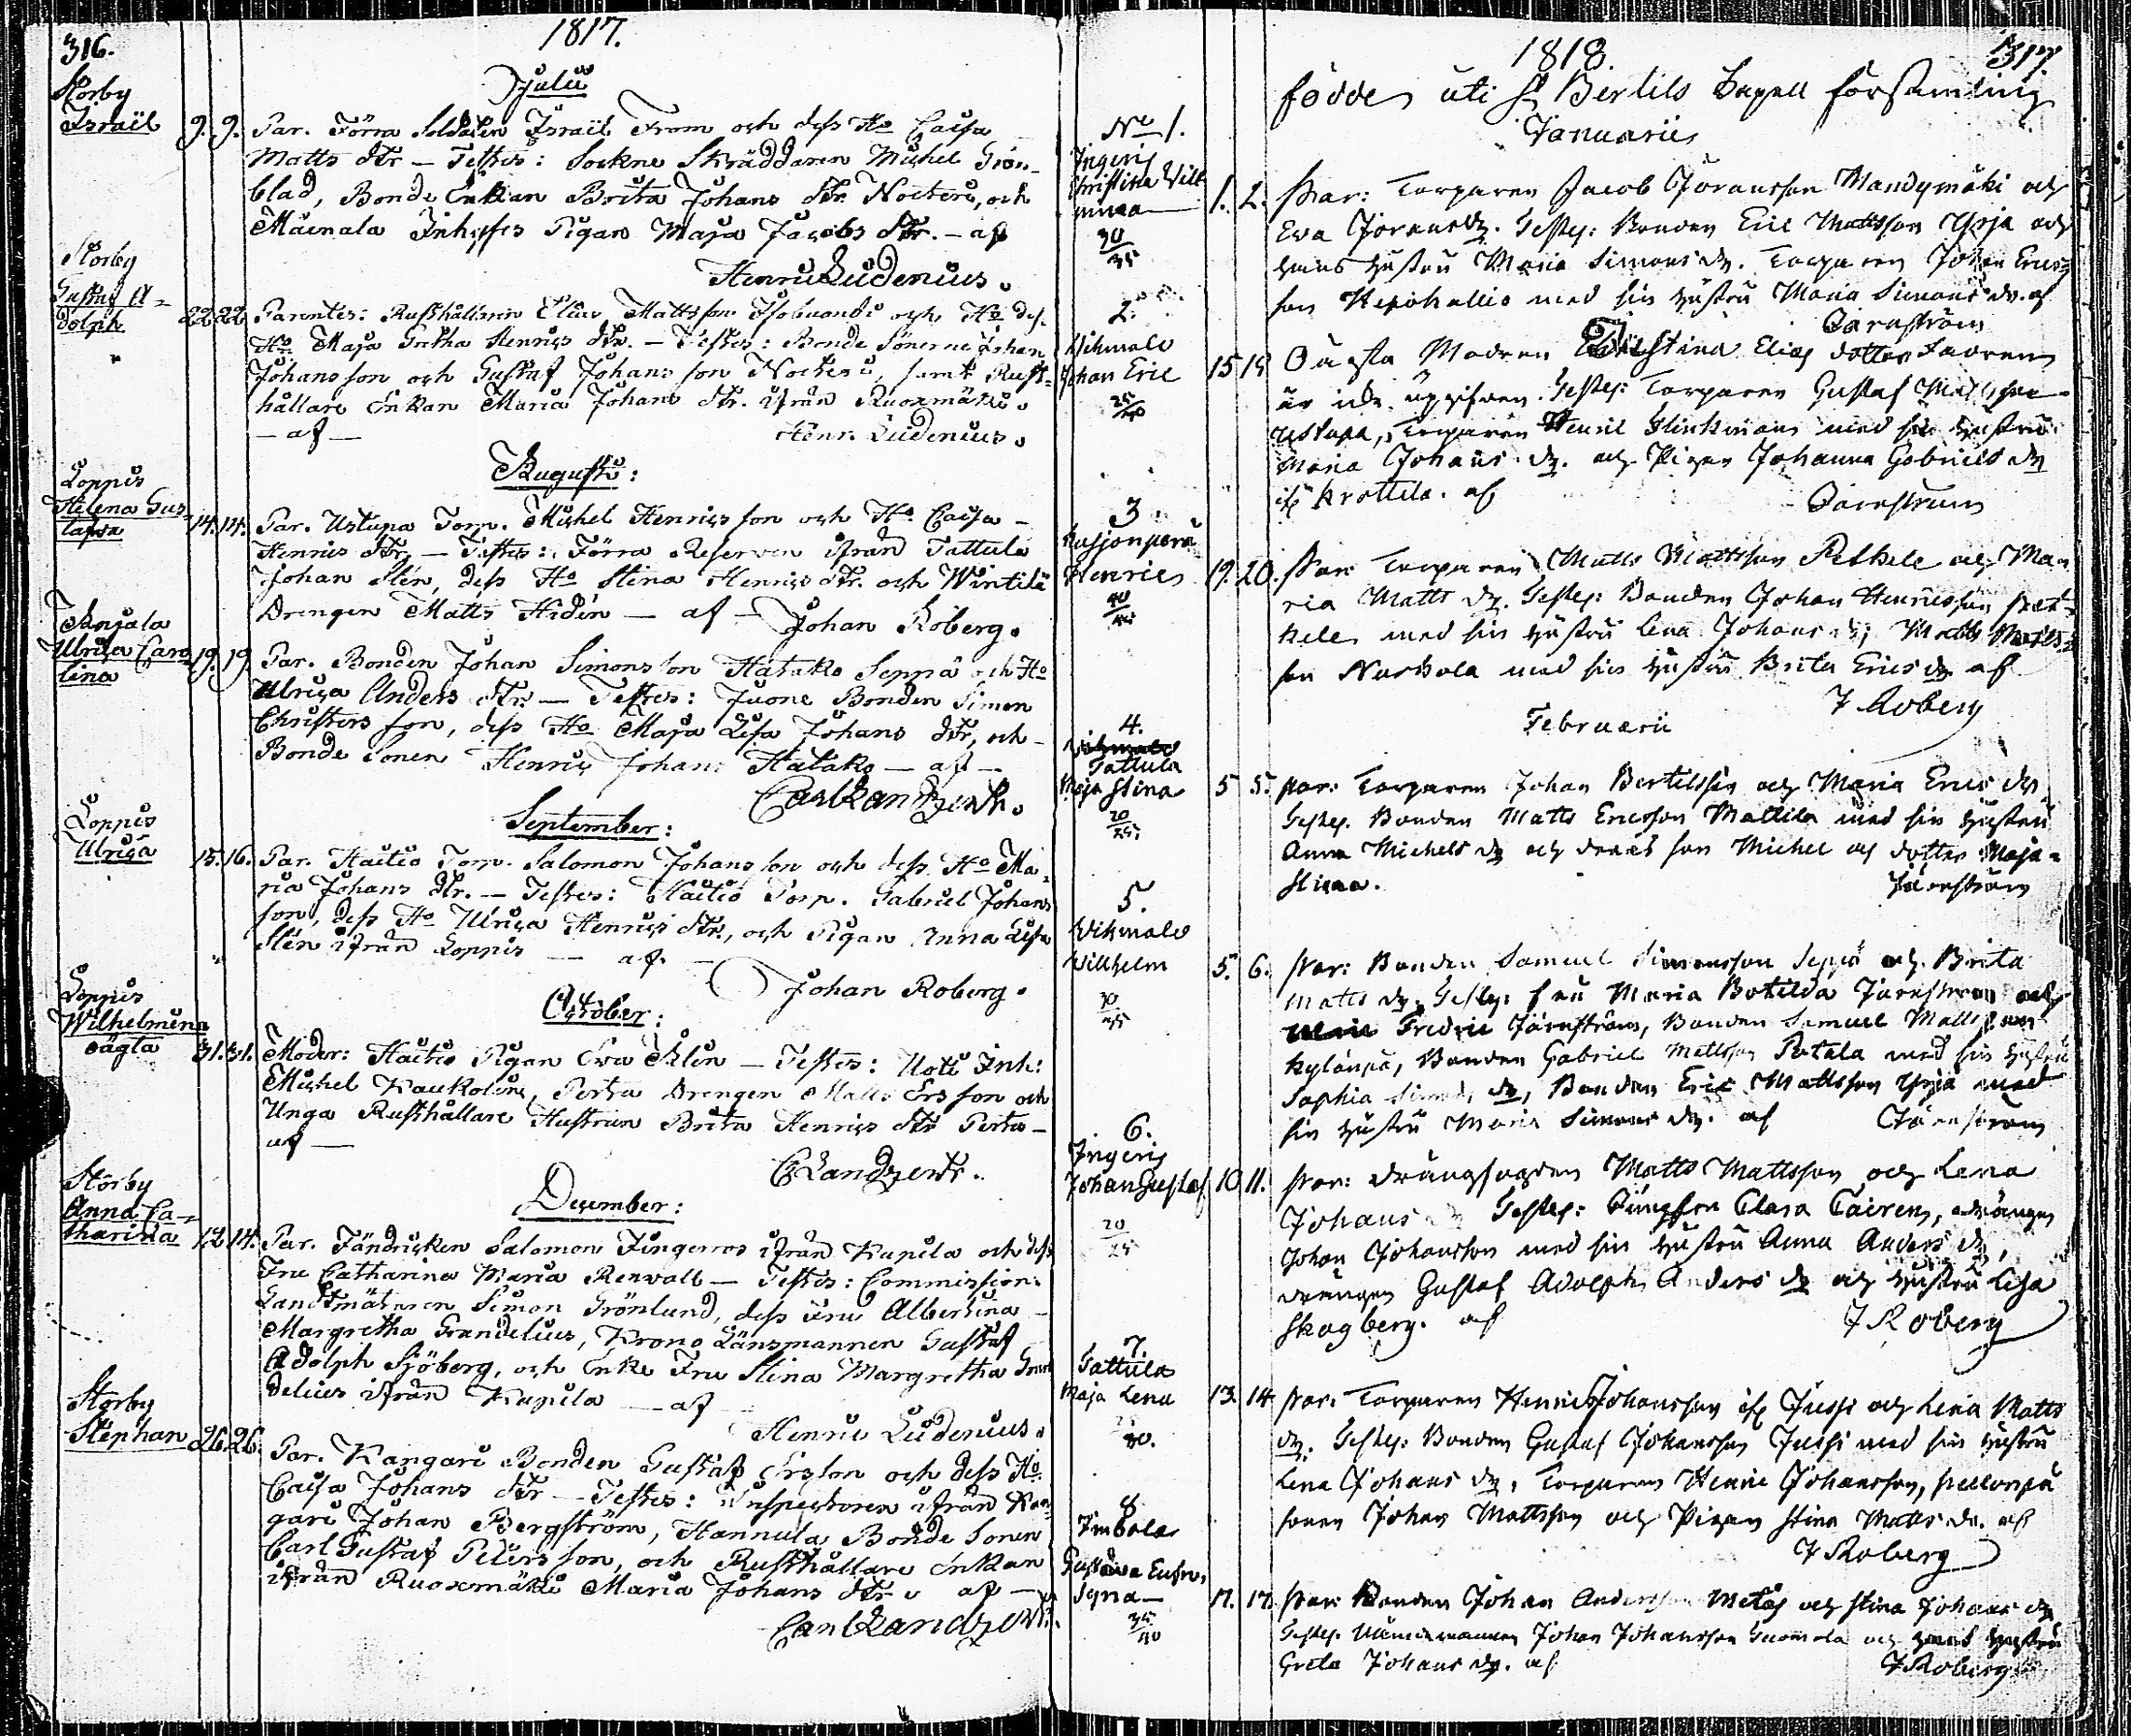 316.
1817.
Julii
Storby
Israël 9. 9. Par. Förra Soldaten Israël From och dess Ho Caisa
Matts dtr — Testes: Sockne Skräddaren Michel Grön-
blad, Bonde Enkan Brita Johans dtr. Nocteri, och
Mäenala Inhyses Pigan Maja Jacobs dtr. — af
Henric Ludenius.
Storby
Gustaf A-
dolph 22. 22. Parentes: Rusthållaren Elias Mattsson och Ho
Ho Maja Gretha Henrics dtr. — Testes: Bonde Sönerne Johan
Johansson och Gustaf Johansson Nocteri, samt Rust-
hållare Enkan Maria Johans dtr. ifrån Ruoxmäki.
— af —
Henr. Ludenius.
Augusti:
Loppis
Helena Gus-
tafva 14. 14. Par. Ustupa Torp. Michel Henricsson och Ho Caisa
Henrics dtr. — Testes: Förra Reserven ifrån Tattula
Johan Slén, dess Ho Stina Henrics dtr. och Wintilä
Drengen Matts Hidén — af — Johan Roberg.
Terjala
Ulrica Caro-
lina 19. 19. Par. Bonden Johan Simonsson Hatako Seppä och Ho
Ulrica Anders dtr. — Testes: Juone Bonden Simon
Christersson, dess Ho Maja Lisa Johans dtr, och
Bonde Sonen Henric Johans Hatako — af —
Carl Landzert.
September:
Loppis
Ulrica 15. 16. Par. Haitio Torp. Salomon Johansson och dess Ho Ma-
ria Johans dtr. — Testes: Haitio Torp. Gabriel Johans
son, dess Ho Ulrica Henrics dtr, och Pigan Anna Lisa
Slén ifrån Loppis — af —
Johan Roberg.
October:
Loppis
Wilhelmina
oägta 31. 31. Moder: Haitio Pigan Eva Slén — Testes: Uoti Inh:
Michel Kaukolin, Perta Drengen Matts Ersson och
Unga Rusthållare Hustrun Brita Henrics dtr Perta —
af —
C Landzert.
December:
Storby
Anna Ca-
tharina 12. 14. Par. Fändricken Salomon Fingerroos ifrån Kapila och dess
Fru Catharina Maria Renvall — Testes: Commissions
Landtmätaren Simon Grönlund, dess Fru Albertina
Margretha Grandelius, Krono Länsmannen Gustaf
Adolph Sjöberg, och Enke Fru Stina Margretha Gran
delius ifrån Kapila — af —
Henric Ludenius.
Storby
Stephan 26. 26. Par. Kangari Bonden Gustaf Ersson och dess Ho
Caisa Johans dtr — Testes: Inspectoren ifrån Kan
gari Johan Bergström, Hannula Bonde Sonen
Carl Gustaf Petersson, och Rusthållare Enkan
ifrån Ruoxmäki Maria Johans dtr. af —
Carl Landzert.
1818. 317.
födde uti St Bertils Capell församling
Januarii
No 1.
Ingeris
Christina Wilhel
mina — 1. 2. Par: Torparen Jacob Göransson Mandymäki och
Eva Göransdr. Testes: Bonden Eric Mattsson Yrja och
hans hustru Maria Simonsdr. Torparen Johan Erics
son med sin hustru Maria Simonsdr. af
Järnström
30
35
2.
Wihmalo
Johan Eric 15 18 Oägta Modren Christina Elias dotter Fadren
är icke uppgifven. Testes: Torparen Gustaf Mattsson
Ustupa, Torparen Henric Glinkman med sin hustru
Maria Johans dr. och Pigan Johanna Gabriels dr
if. Krottila. af Järnström
25
30
3.
Kusjonperä
Henric 19. 20. Par: Torparen Matts Mattsson Pethele och Ma
ria Matts dr. Testes: Bonden Johan Henricsson Pet
hele med sin hustru Lena Johans dr, Matts Matts-
son Nurkola med sin hustru Brita Erics dr af
J Roberg
40
45
Februarii
4.
Tattula
Maja Stina 5 5. Par: Torparen Johan Bertilsson och Maria Erics dr
Testes. Bonden Matts Ericsson Mattila med sin hustru
Anna Michels dr och deras son Michel och dotter Maja-
Stina. Järnström
20
25
5.
Wihmalo
Wilhelm 5. 6. Par: Bonden Samuel Simonsson Seppä och Brita
Matts dr. Testes: fru Maria Botilda Järnström och
Fredric Järnström, Bonden Samuel Mattsson
Kylänpä, Bonden Gabriel Mattsson Patala med sin hustru
Sophia Simons dr, Bonden Eric Mattsson Yrja med
sin hustru Maria Simons dr. af Järnström
30
35
6.
Ingeris
Johan Gustaf 10 11. Par: Drängfogden Matts Mattsson och Lena
Johans dr Testes: Jungfru Clara Cairenius, drängen
Johan Johansson med sin hustru Anna Anders dr,
drängen Gustaf Adolph Anders dr och hustru Lisa
Skogberg. af J Roberg
20
25
7.
Tattula
Maja Lena 13. 14 Par: Torparen Henric Johansson if. Jussi och Lena Matts
dr. Testes: Bonden Gustaf Johansson Jussi med sin hustru
Lena Johans dr, Torparen Henric Johansson,
sonen Johan Mattsson och Pigan Stina Matts dr. af
J Roberg
25
30.
8
Imbola
Gustava Eufro-
syna — 17. 17. Par: Bonden Johan Andersson och Stina Johans dr
Testes. Nämdemannen Johan Johansson och hans hustru
Greta Johans dr. af J Roberg
35
40